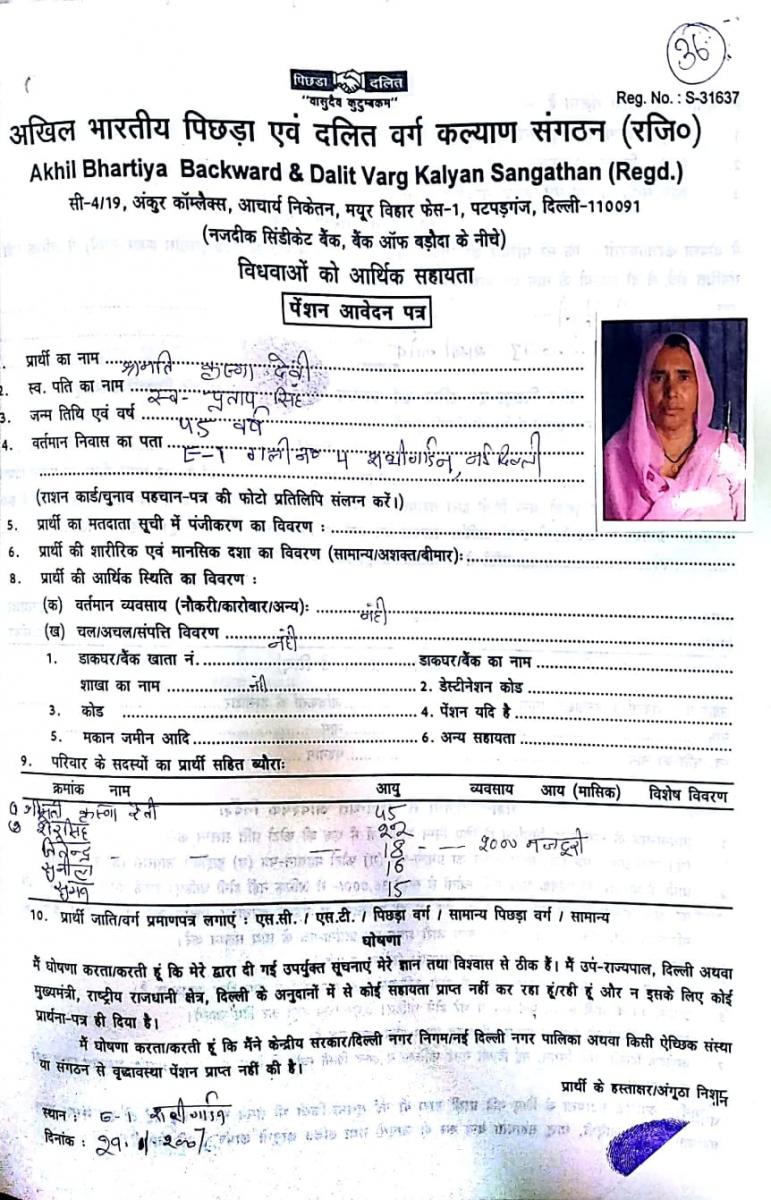 36
पिछड़ा दलित
"वासुदेव कुटुम्बकम"
Reg. No. : S-31637
अखिल भारतीय पिछड़ा एवं दलित वर्ग कल्याण संगठन (रजि०)
Akhil Bhartiya Backward & Dalit Varg Kalyan Sangathan (Regd.)
सी-4/19, अंकुर कॉम्लैक्स, आचार्य निकेतन, मयूर विहार फेस-1, पटपड़गंज, दिल्ली-110091
(नजदीक सिंडीकेट बैंक, बैंक ऑफ बड़ौदा के नीचे)
विधवाओं को आर्थिक सहायता
पेंशन आवेदन पत्र
प्रार्थी का नाम श्रीमति कृष्णा देवी
2. स्व. पति का नाम स्व- प्रताप सिंह
3. जन्म तिथि एवं वर्ष ४५ वर्ष
4. वर्तमान निवास का पता E-1 गली नं० ५ शशीगार्डन, नई दिल्ली
(राशन कार्ड/चुनाव पहचान-पत्र की फोटो प्रतिलिपि संलग्न करें।)
5. प्रार्थी का मतदाता सूची में पंजीकरण का विवरण :
6. प्रार्थी की शारीरिक एवं मानसिक दशा का विवरण (सामान्य/अशक्त/बीमार):
8. प्रार्थी की आर्थिक स्थिति का विवरण :
(क) वर्तमान व्यवसाय (नौकरी/कारोबार/अन्य): नही
(ख) चल/अचल/संपत्ति विवरण नही
1. डाकघर/बैंक खाता नं. डाकघर/बैंक का नाम
शाखा का नाम नही 2. डेस्टीनेशन कोड
3. कोड 4. पेंशन यदि है
5. मकान जमीन आदि 6. अन्य सहायता
9. परिवार के सदस्यों का प्रार्थी सहित ब्यौराः
क्रमांक नाम आयु व्यवसाय आय (मासिक) विशेष विवरण
श्रीमती कृष्णा देवी ४५
शेरसिंह 22
जितेन्द्र 18 2000 मजदूरी
सुनील 16
15
10. प्रार्थी जाति/वर्ग प्रमाणपत्र लगाएं : एस.सी. / एस.टी. / पिछड़ा वर्ग / सामान्य पिछड़ा वर्ग / सामान्य
घोषणा
मैं घोषणा करता/करती हूं कि मेरे द्वारा दी गई उपर्युक्त सूचनाएं मेरे ज्ञान तथा विश्वास से ठीक हैं। मैं उप-राज्यपाल, दिल्ली अथवा
मुख्यमंत्री, राष्ट्रीय राजधानी क्षेत्र, दिल्ली के अनुदानों में से कोई सहायता प्राप्त नहीं कर रहा हूं/रही हूं और न इसके लिए कोई
प्रार्थना-पत्र ही दिया है।
मैं घोषणा करता/करती हूं कि मैंने केन्द्रीय सरकार/दिल्ली नगर निगम/नई दिल्ली नगर पालिका अथवा किसी ऐच्छिक संस्था
या संगठन से वृद्धावस्था पेंशन प्राप्त नहीं की है।
प्रार्थी के हस्ताक्षर/अंगूठा निशान
स्थान : E-1 शशीगार्डन
दिनांक : 29.1.2007